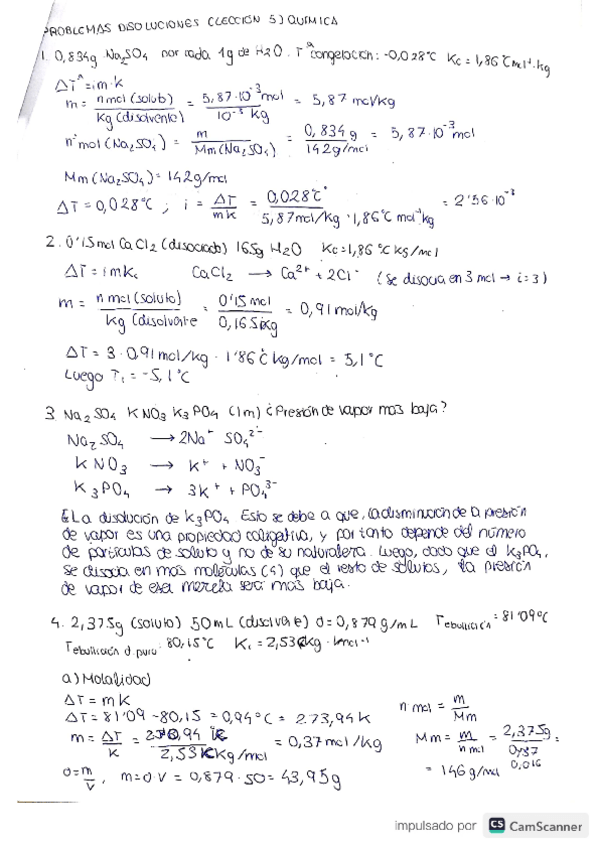 PROBLEMAS DISOLUCIONES (LECCIÓN 5) QUÍMICA
1. 0,834g Na₂SO₄ por cada 1g de H₂O. Tª congelación: -0,028°C Kc = 1,86°C mol⁻¹·kg
ΔTª = i m · K
m = n mol (solub) / Kg (disolvente) = 5,87·10⁻³ mol / 10⁻³ kg = 5,87 mol/kg
nº mol (Na₂SO₄) = m / Mm (Na₂SO₄) = 0,834 g / 142 g/mol = 5,87·10⁻³ mol
Mm (Na₂SO₄) = 142 g/mol
ΔT = 0,028°C ; i = ΔT / mK = 0,028°C / 5,87 mol/kg · 1,86°C mol⁻¹ kg = 2'56·10⁻³
2. 0'15 mol CaCl₂ (disociado) 165g H₂O Kc = 1,86 °C kg/mol
ΔT = i m Kc CaCl₂ → Ca²⁺ + 2Cl⁻ (se disocia en 3 mol → i = 3)
m = n mol (soluto) / kg (disolvente = 0'15 mol / 0,165 kg = 0,91 mol/kg
ΔT = 3 · 0,91 mol/kg · 1'86 °C kg/mol = 5,1 °C
Luego T₁ = -5,1°C
3. Na₂SO₄ KNO₃ K₃PO₄ (1m) ¿Presión de vapor más baja?
Na₂SO₄ → 2Na⁺ SO₄²⁻
KNO₃ → K⁺ + NO₃⁻
K₃PO₄ → 3K⁺ + PO₄³⁻
La disolución de K₃PO₄. Esto se debe a que, la disminución de la presión
de vapor es una propiedad coligativa, y por tanto depende del número
de partículas de soluto y no de su naturaleza. Luego, dado que el K₃PO₄,
se disocia en más moléculas (4) que el resto de solutos, la presión
de vapor de esa mezcla será más baja.
4. 2,375g (soluto) 50 mL (disolvente) d = 0,879 g/mL Tebullición = 81'09°C
Tebullición d. puro: 80,15°C
a) Molalidad
ΔT = m K
ΔT = 81'09 - 80,15 = 0,94°C = 273,94 K
m = ΔT / K = 0,94 / 2,53 kg/mol = 0,37 mol/kg
d = m/v , m = d·V = 0,879 · 50 = 43,95 g
n mol = m / Mm
Mm = m / n mol = 2,375g / 0,016 =
= 146 g/mol
impulsado por CS CamScanner